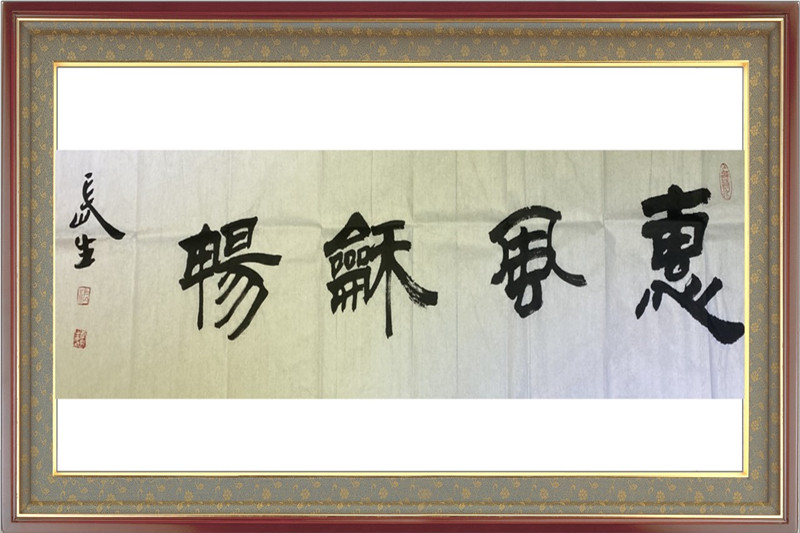 惠風龢暢
長生